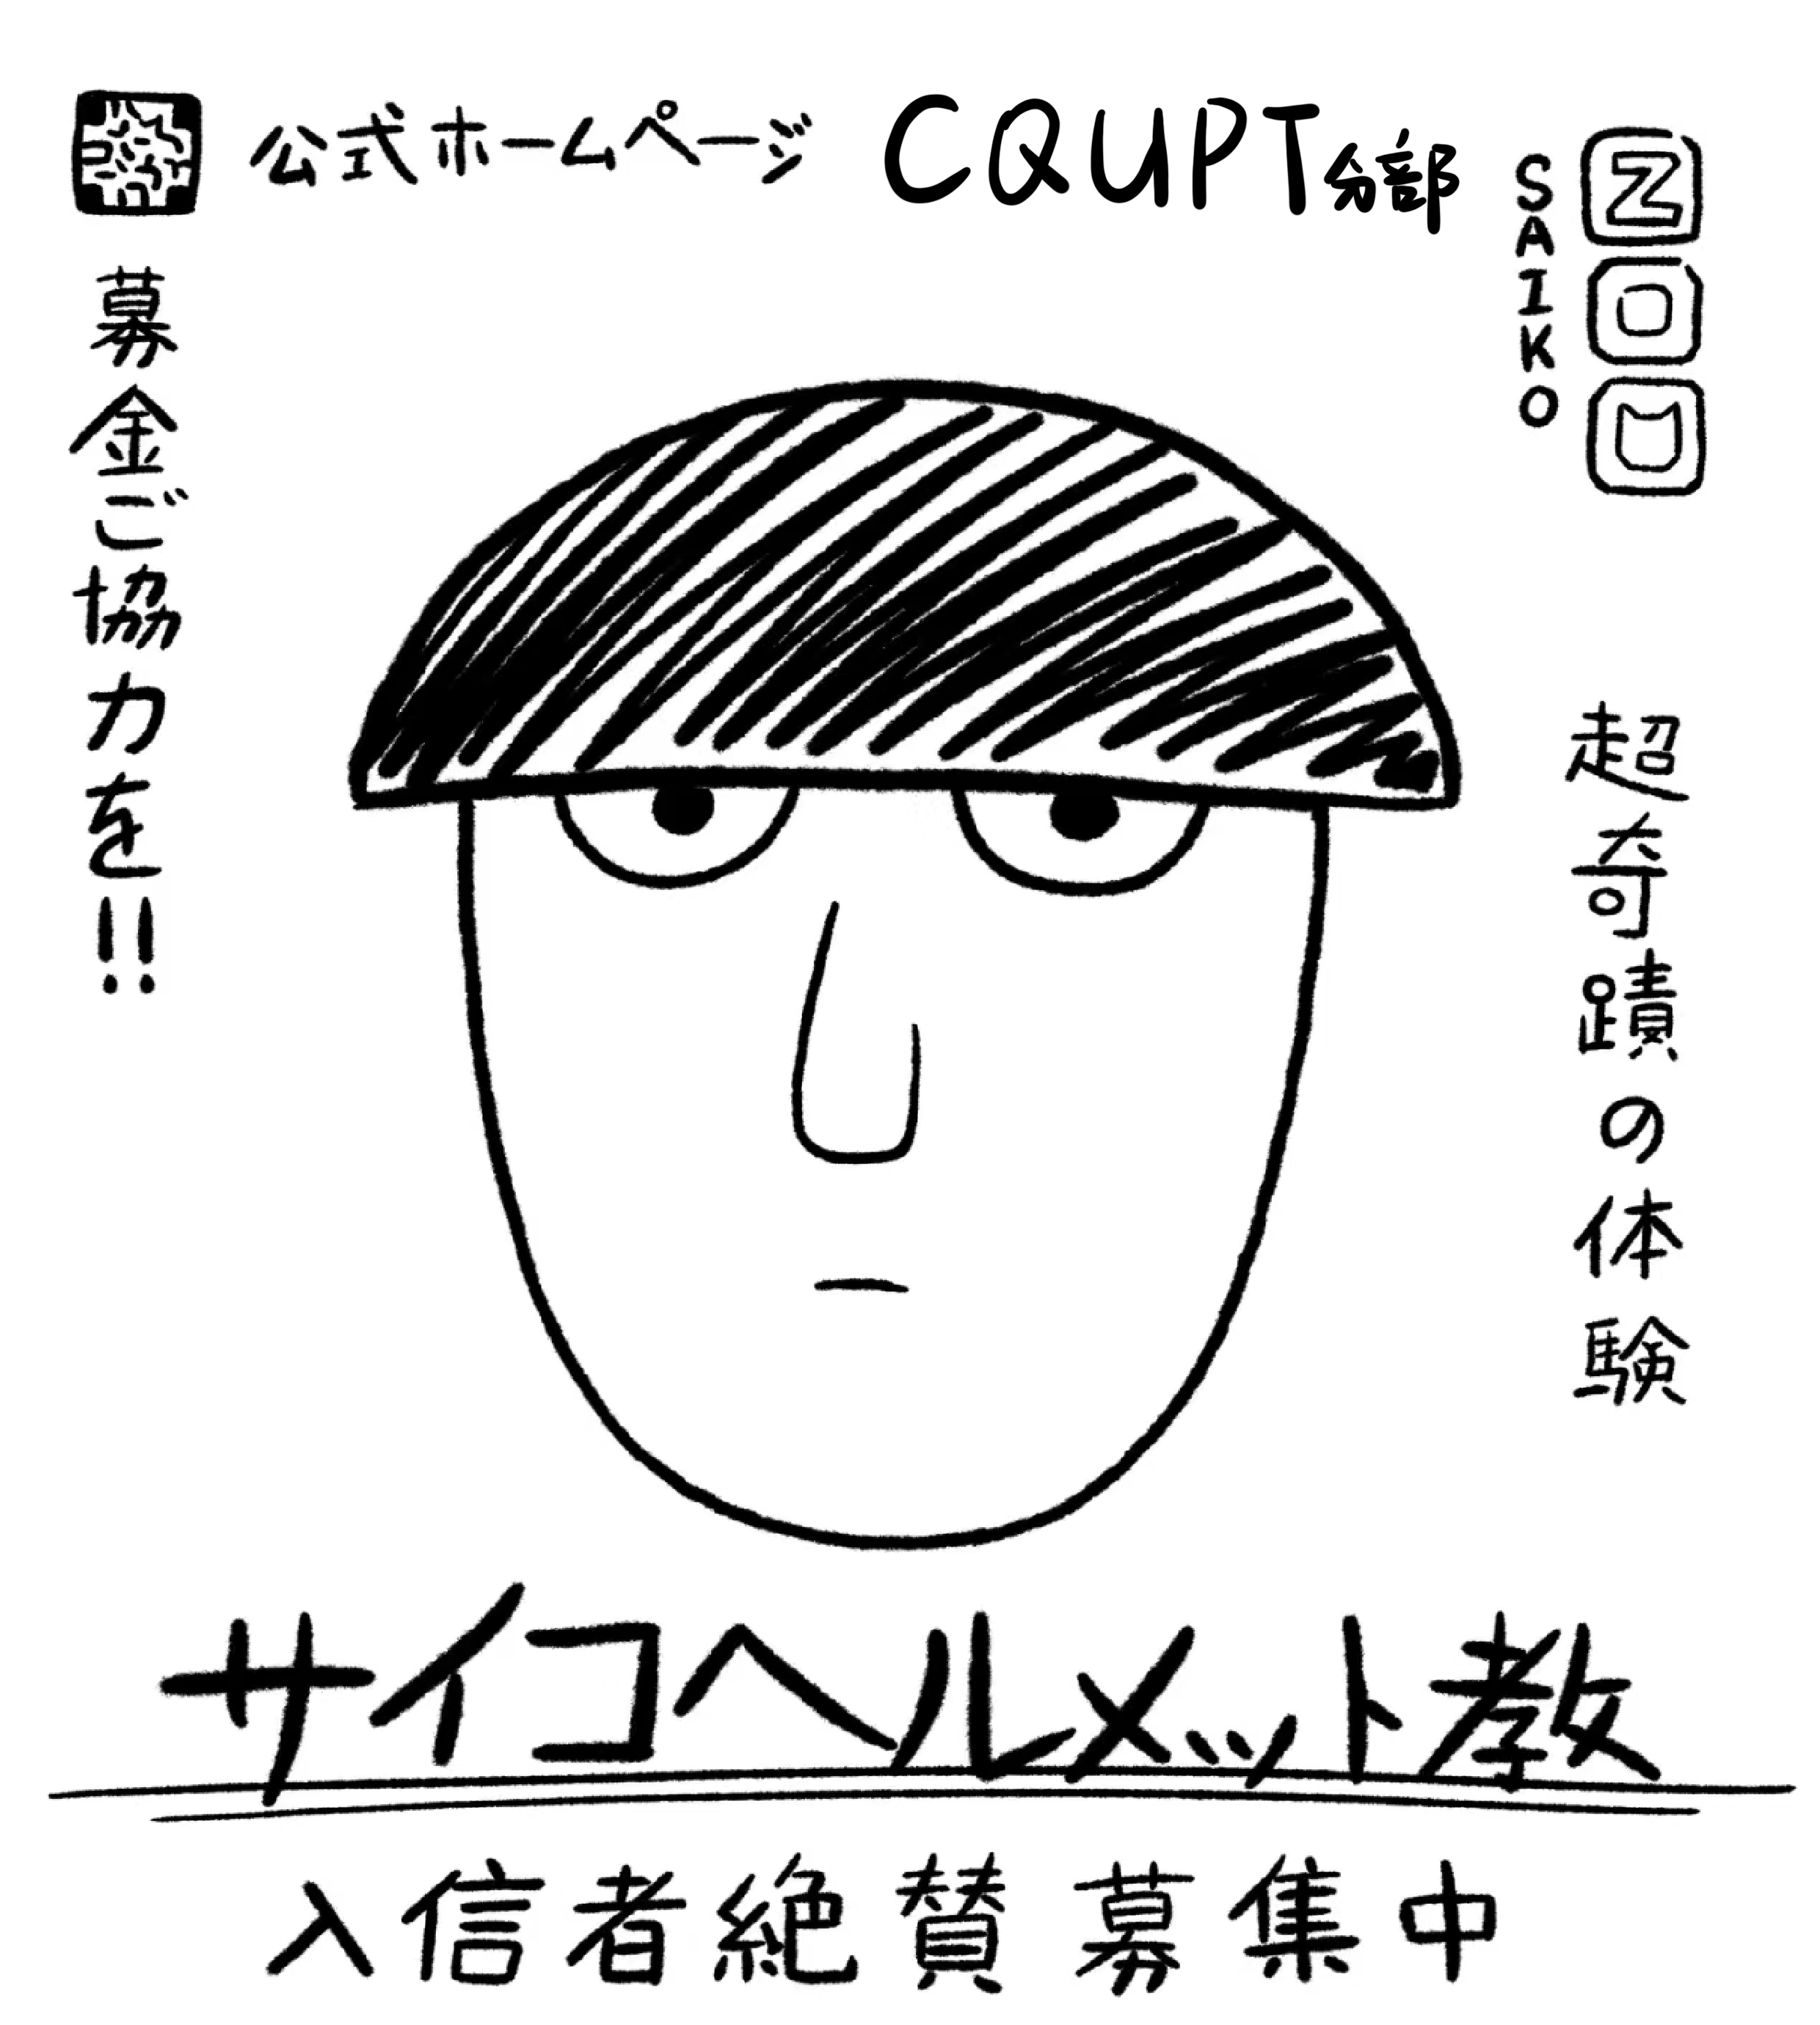 公式ホームページ CQUPT分部
SAIKO
ZOO
募金ご協力を!!
超奇蹟の体験
サイコヘルメット教
入信者絶賛募集中